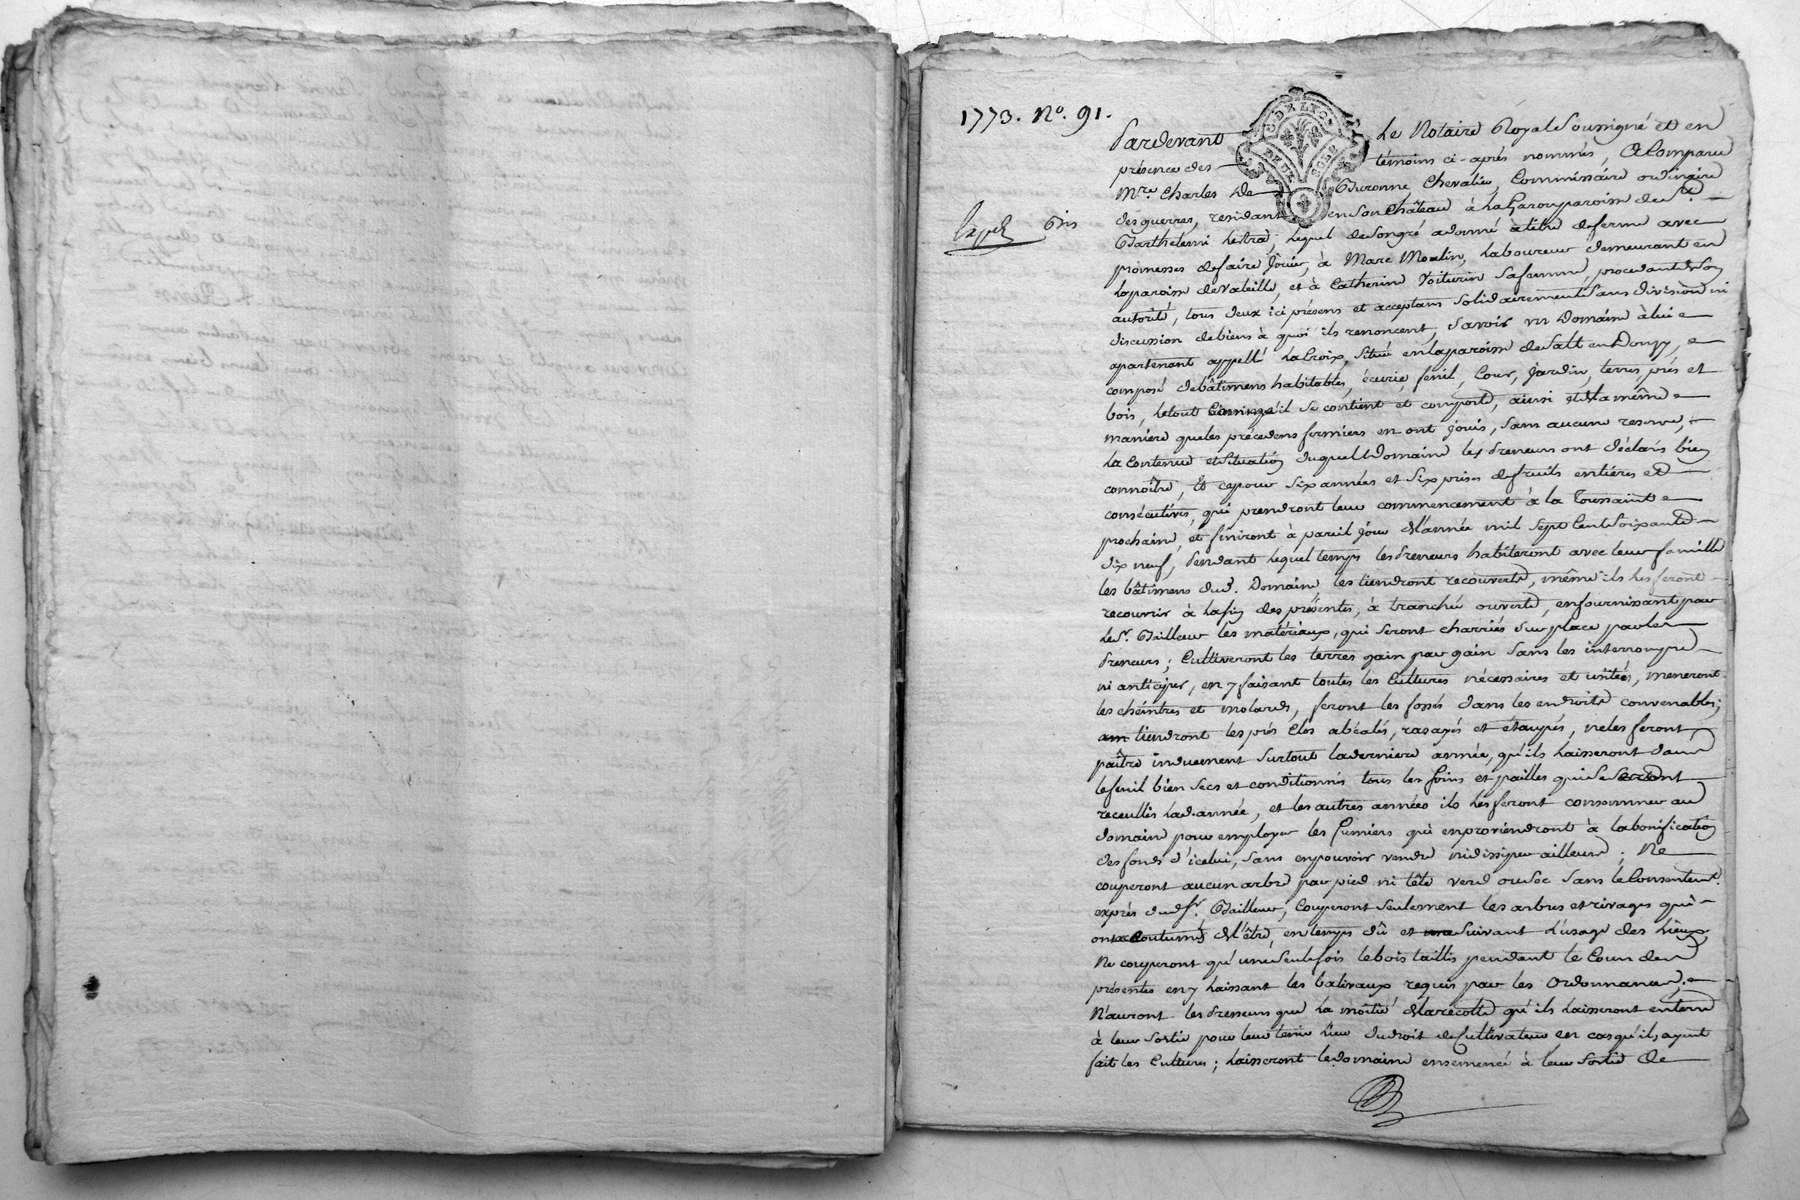 1773. N°. 91.
G. DE LYON
DEUX SOLS
Pardevant Le Notaire Royal Soussigné et en
présence des témoins ci-après nommés, A Comparu
Mre. Charles De Chevalier, Commissaire ordinaire
des guerres, residant en son Château à La paroisse de St.
Barthelemi Lestra, Lequel de son gré a donné à titre de ferme avec
promesses de faire Jouir, à Marc Moulin, Laboureur demeurant en
La paroisse de Valeille, et à Catherine Voiturin sa femme, procedant de son
autorité, tous deux ici présens et acceptans solidairement sans division ni
discussion de biens à quoi ils renoncent, Savoir un Domaine à lui
apartenant appellé LaCroix, Situé en la paroisse de Salt en Donzy,
composé de bâtimens habitables, écurie, fenil, Cour, Jardin, terres prés et
bois, Le tout se contient et comporte, ainsi et de la même
maniere que les précedens fermiers en ont Joui, Sans aucune reserve,
La Contenue et Situation duquel Domaine les Preneurs ont déclaré bien
connoître, Et ce pour Six années et Six prises de fruits entiéres et
consécutives, qui prendront leur commencement à la Toussaint
prochaine, et finiront à pareil Jour de l'année mil Sept Cent Soixante
dix neuf, Pendant lequel temps les Preneurs habiteront avec leur famille
les bâtimens dud. Domaine, les tiendront recouverts, même ils les feront
recouvrir à la fin des présentes, à tranché ouverte, en fournissant par
Le Sr. Bailleur les matériaux, qui seront charriés sur place par les
Preneurs; Cultiveront les terres gain par gain sans les interrompre
ni anticiper, en y faisant toutes les Cultures nécessaires et usitées, meneront
les cheintres et molards, feront les fossés dans les endroits convenables;
tiendront les prés Clos abéalés, rasayés et étaupés, ne les feront
paître induement surtout la derniere année, qu'ils laisseront dans
le fenil bien secs et conditionnés tous les foins et pailles qui se seront
receuillis lad. année, et les autres années ils les feront consommer au
domaine pour employer les fumiers qui en proviendront à la bonification
des fonds d'icelui, sans en pouvoir vendre ni dissiper ailleurs; Ne
couperont aucun arbre par pied ni tête verd ou sec sans le Consentemt.
exprès dud. Sr. Bailleur, Couperont seulement les arbres et rivages qui
ont accoutumés de l'être, en temps dû et suivant L'usage des Lieux,
Ne couperont qu'une seule fois le bois taillis pendant le Cours des
présentes en y laissant les balivaux requis par les Ordonnances,
N'auront les Preneurs que La moitié de la récolte qu'ils laisseront en terre
à leur Sortie pour leur tenir Lieu du droit de Cultivateur en cas qu'ils ayent
fait les Cultures; Laisseront le domaine ensemencé à leur Sortie de